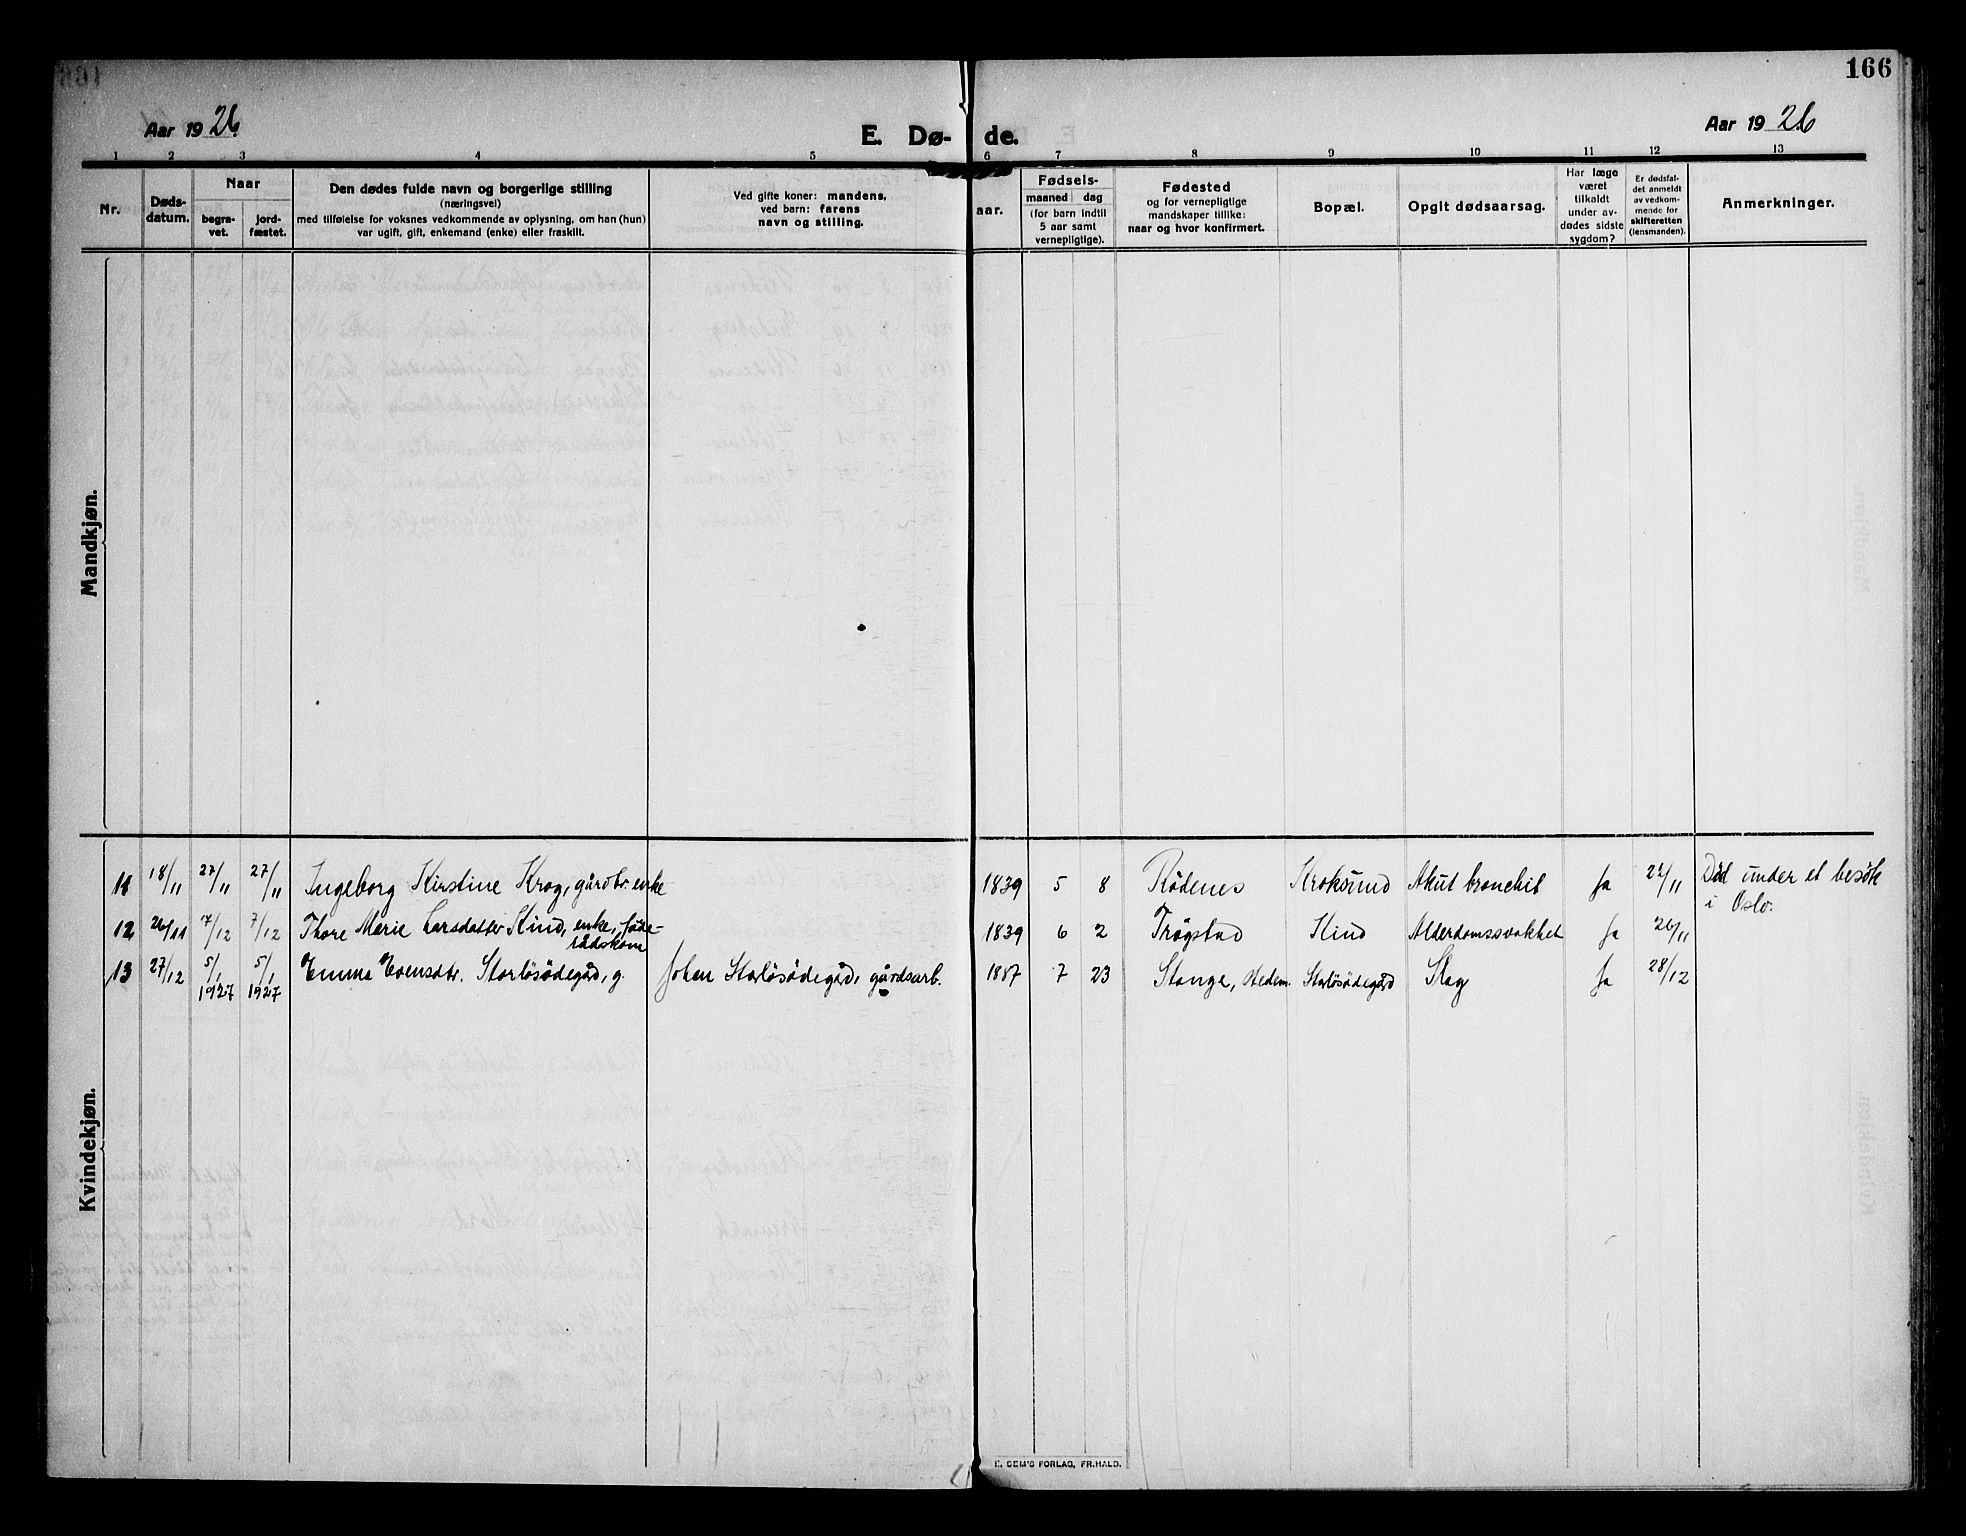 166
Aar 1926
E. Dø- de.
Aar 1926
1 2 3 4 5 6 7 8 9 10 11 12 13
Nr.
Døds-
datum.
Naar
begra-
vet.
jord-
fæstet.
Den dødes fulde navn og borgerlige stilling
(næringsvei)
med tilføielse for voksnes vedkommende av oplysning, om han (hun)
var ugift, gift, enkemand (enke) eller fraskilt.
Ved gifte koner: mandens,
ved barn: farens
navn og stilling.
aar.
Fødsels-
maaned dag
(for barn indtil
5 aar samt
vernepligtige).
Fødested
og for vernepligtige
mandskaper tillike:
naar og hvor konfirmert.
Bopæl.
Opgit dødsaarsag.
Har læge
været
tilkaldt
under av-
dødes sidste
sygdom?
Er dødsfal-
det anmeldt
av vedkom-
mende for
skifteretten
(lensmanden).
Anmerkninger.
Mandkjøn.
Kvindekjøn.
11 18/11 27/11 27/11 Ingeborg Kirstine Krog, gårdbr. enke 1839 5 8 Rödenes Kroksund Akut bronchit Ja 22/11 Död under et besök
i Oslo.
12 26/11 7/12 7/12 Thore Marie Larsdatter Kind, enke, föde- 1839 6 2 Trögstad Kind Alderdomssvakhet Ja 26/11
rådskone
13 27/12 5/1 5/1 Emma Evensdtr. Storlösödegård, g. Johan Storlösödegård, gårdsarb. 1887 7 23 Stange, Hedem. Storlösödegård Slag Ja 28/12
1927 1927
E. SEM'S FORLAG, FR.HALD.